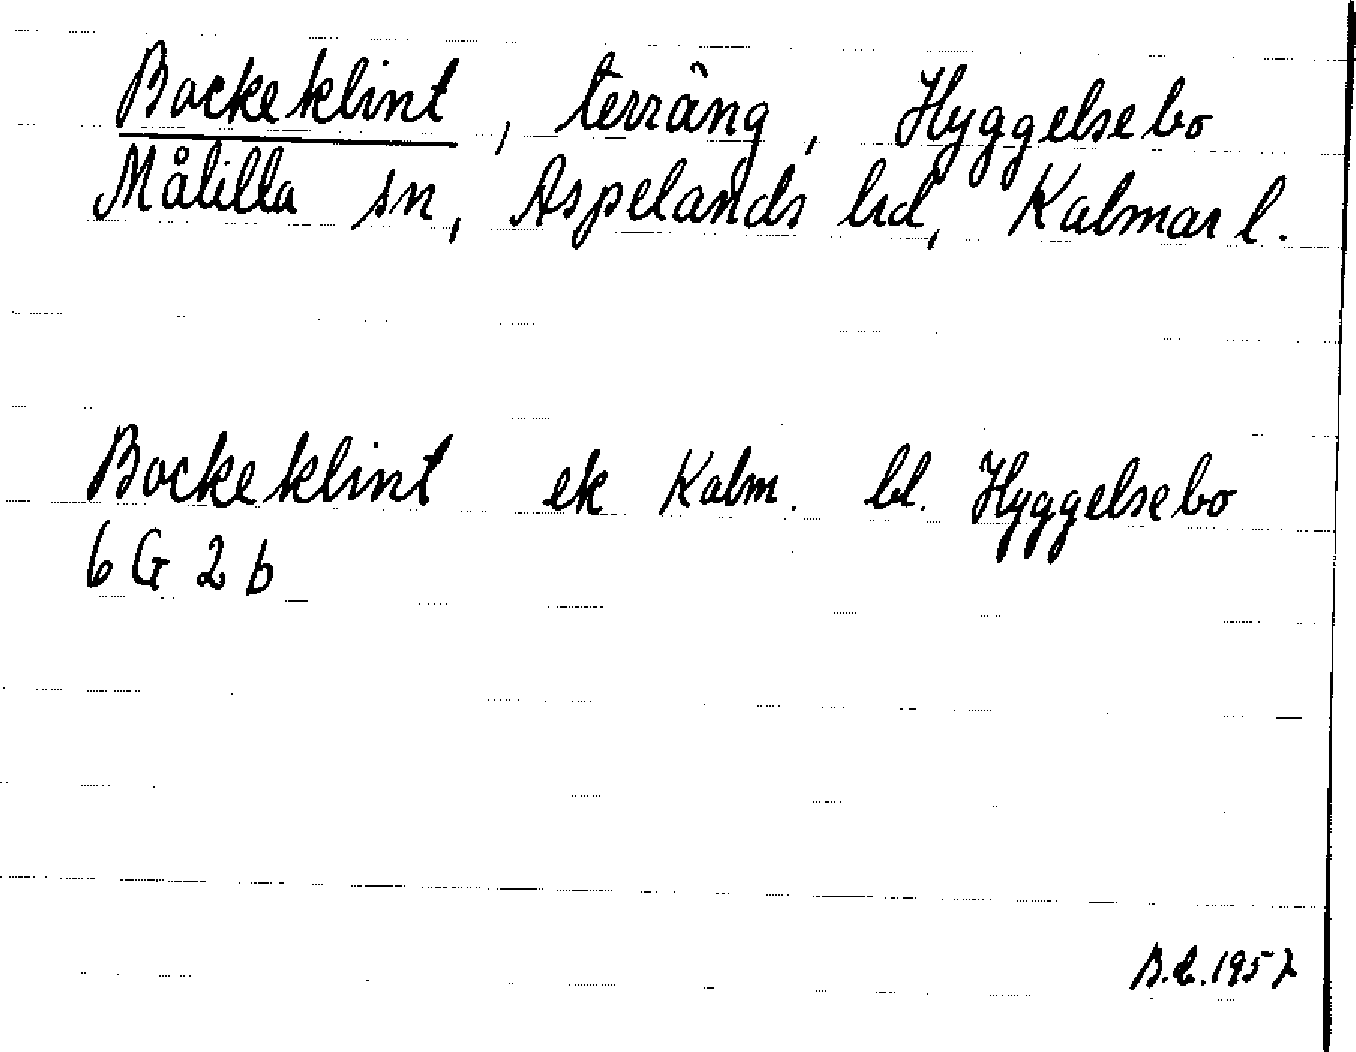 Bockeklint, terräng, Hyggelsebo
Målilla sn, Aspelands hd, Kalmar l.
Bockeklint ek Kalm. bl. Hyggelsebo
6 G 2 b
1957